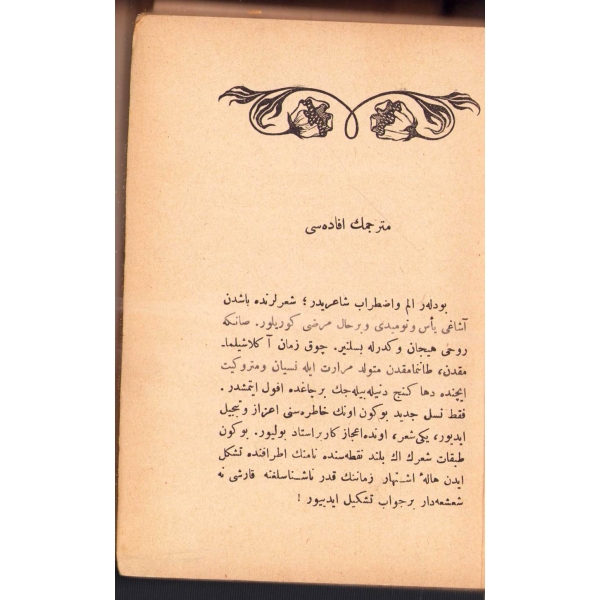 مترجمك افاده‌سی
بودله‌ر الم واضطراب شاعریدر؛ شعرلرنده باشدن
آشاغی یأس و نومیدی و برحال مرضی كوریلور. صانكه
روحی هیجان و كدرله بسلنیر. چوق زمان آ كلاشیلما-
مقدن، طانمامقدن متولد مرارت ایله نسیان و متروكیت
ایچنده دها كنج دنیله‌بیله‌جك برچاغده افول ایتمشدر.
فقط نسل جدید بوكون اونك خاطره‌سنی اعزاز و تبجیل
ایدیور، یكی شعر، اونده اعجاز كار بر استاد بولیور. بوكون
طبقات شعرك اك بلند نقطه‌سنده نامنك اطرافنده تشكل
ایدن هالهٔ اشتهار زماننك قدر ناشناسلغنه قارشی نه
شعشعه‌دار برجواب تشكیل ایدییور!